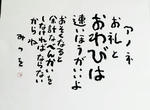 アノネ
お礼と
おわびは
速いほうがいよ
おそくなると
余計なべんかいを
しなければならない
からね
みつを